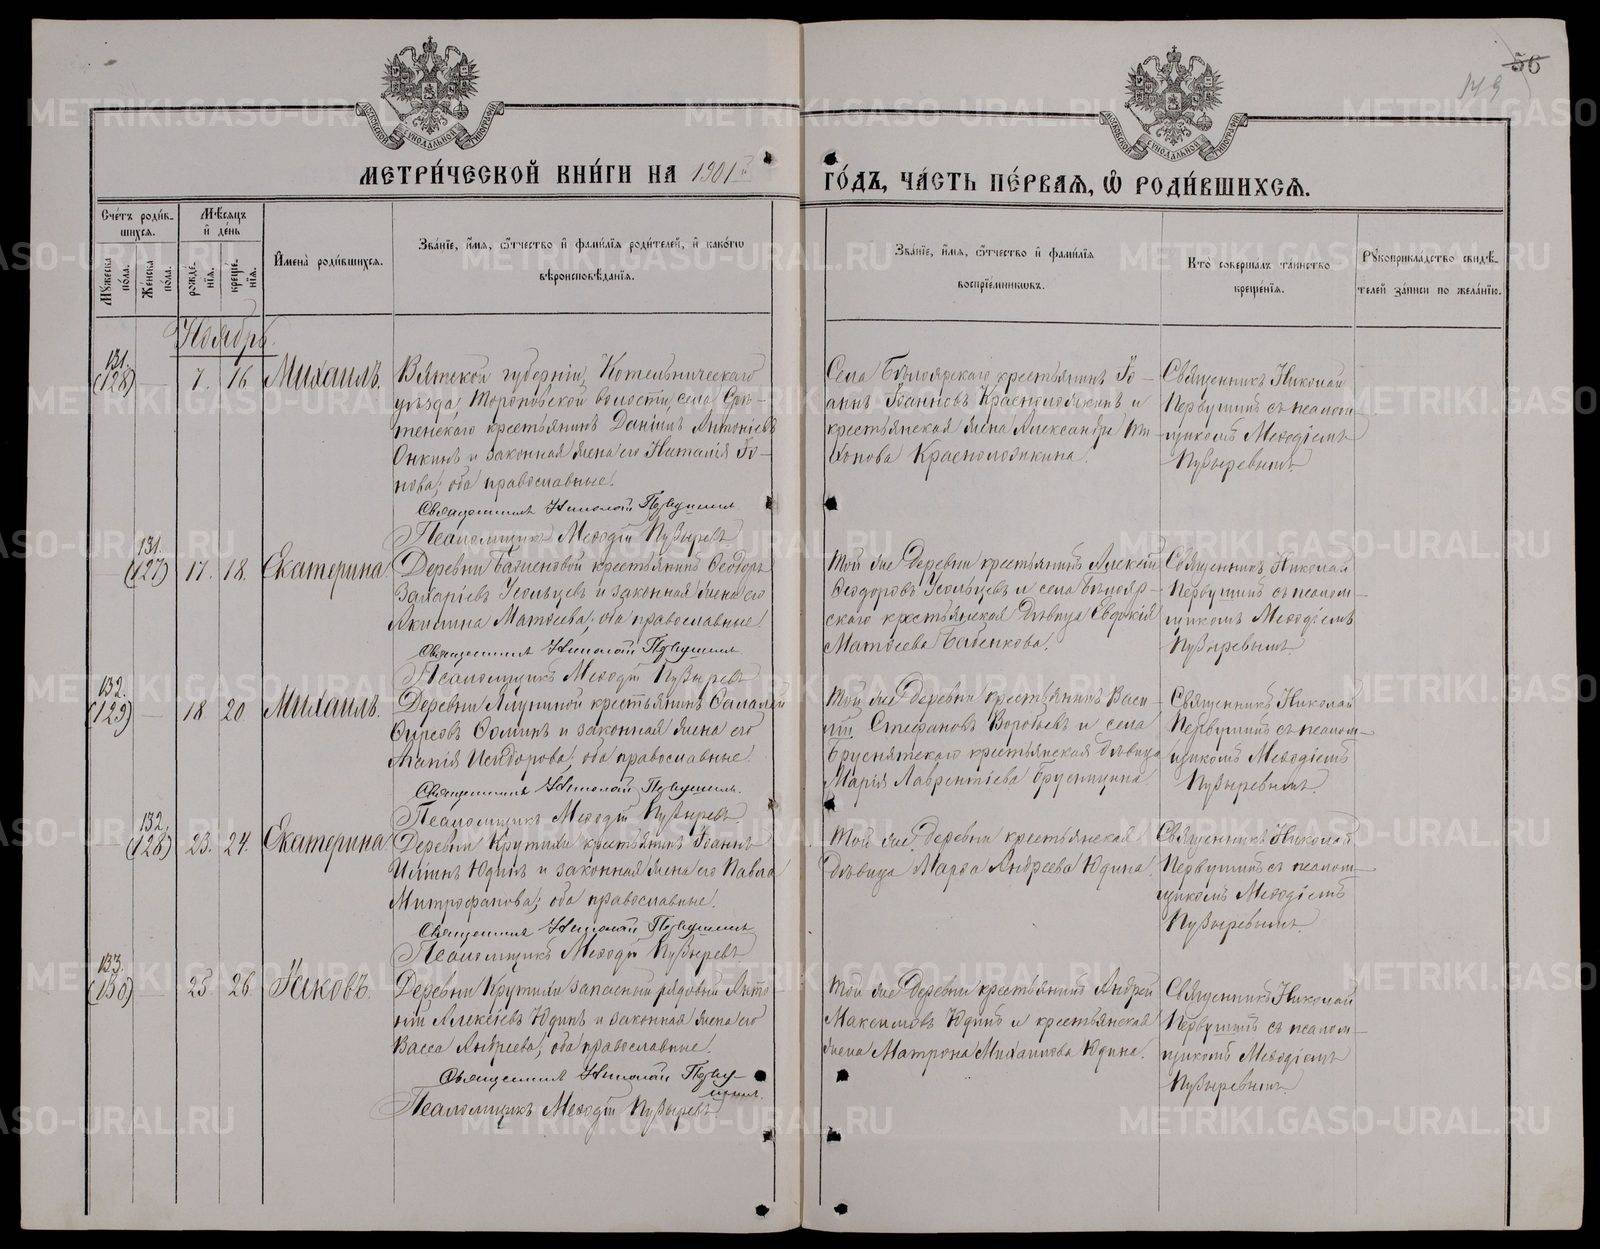 56
149
МЕТРИ́ЧЕСКОЙ КНИ́ГИ НА 1901й
ГО́ДЪ, ЧА́СТЬ ПЕ́РВАЯ, Ѡ РОДИ́ВШИХСЯ.
Сче́тъ роди́в-
шихся.
Мꙋ́жеска по́ла.
Же́нска по́ла.
Мѣ́сяцъ
и де́нь
рожде́нїя.
креще́нїя.
Имена̀ роди́вшихся.
Зва́нїе, и́мя, ѻ́тчество и фами́лїя роди́телей, и како́гѡ
вѣроисповѣ́данїя.
Зва́нїе, и́мя, ѻ́тчество и фами́лїя
воспрїе́мникѡвъ.
Кто̀ соверша́лъ та́инство
креще́нїя.
Рꙋкоприкла́дство свидѣ́-
телей за́писи по жела́нїю.
Ноябрь.
131.
(128)
7. 16
Михаилъ.
Вятской губерніи, Котельническаго
уѣзда, Тороповской волости, села Срѣ-
тенскаго крестьянинъ Даніилъ Антоніевъ
Онкинъ и законная жена его Наталія Іо-
нова; оба православные.
Священникъ Николай Первушинъ
Псаломщикъ Меѳодій Пузыревъ
Села Бѣлоярскаго крестьянинъ Іо-
аннъ Іоанновъ Краснолобкинъ и
крестьянская жена Александра
Краснолобкина.
Священникъ Николай
Первушинъ съ псалом-
щикомъ Меѳодіемъ
Пузыревымъ
131.
(127)
17. 18.
Екатерина.
Деревни Бабиновой крестьянинъ Ѳеодоръ
Захаріевъ Усольцевъ и законная жена его
Акилина Матѳеева; оба православные.
Священникъ Николай Первушинъ
Псаломщикъ Меѳодій Пузыревъ
Той же деревни крестьянинъ Алексій
Ѳеодоровъ Усольцевъ и села Бѣлояр-
скаго крестьянская дѣвица Евдокія
Матѳеева Бабикова.
Священникъ Николай
Первушинъ съ псалом-
щикомъ Меѳодіемъ
Пузыревымъ
132.
(129)
18 20
Михаилъ.
крестьянинъ
и законная жена его
Агапія Исидорова; оба православные.
Священникъ Николай Первушинъ
Псаломщикъ Меѳодій Пузыревъ.
Той же деревни крестьянинъ Васи-
лій Стефановъ Воробьевъ и села
Бруснятскаго крестьянская дѣвица
Марія Лаврентіева Брусницина
Священникъ Николай
Первушинъ съ псалом-
щикомъ Меѳодіемъ
Пузыревымъ.
132.
(128)
23. 24.
Екатерина
Деревни Крутихи крестьянинъ Іоаннъ
Ильинъ Юдинъ и законная жена его Павла
Митрофанова; оба православные.
Священникъ Николай Первушинъ
Псаломщикъ Меѳодій Пузыревъ
Той же деревни крестьянская
дѣвица Марѳа Андреева Юдина.
Священникъ Николай
Первушинъ съ псалом-
щикомъ Меѳодіемъ
Пузыревымъ
133.
(130)
25 26
Іаковъ.
Деревни Крутихи запасный рядовый Анто-
ній Алексѣевъ Юдинъ и законная жена его
Васса Андреева; оба православные.
Священникъ Николай Перву-
шинъ.
Псаломщикъ Меѳодій Пузыревъ.
Той же деревни крестьянинъ Андрей
Максимовъ Юдинъ и крестьянская
жена Матрона Михаилова Юдина.
Священникъ Николай
Первушинъ съ псалом-
щикомъ Меѳодіемъ
Пузыревымъ
METRIKI.GASO-URAL.RU